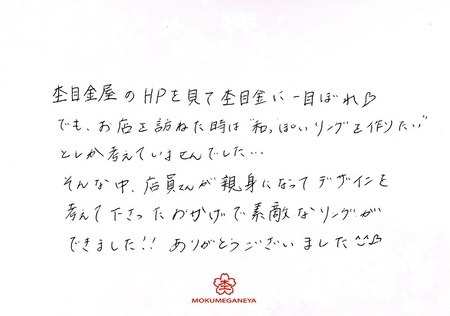 杢目金屋のHPを見て杢目金に一目ぼれ♡
でも、お店を訪ねた時は“和っぽいリングを作りたい”
としか考えていませんでした…
そんな中、店員さんが親身になってデザインを
考えて下さったおかげで素敵なリングが
できました!! ありがとうございました^^♡
杢
MOKUMEGANEYA